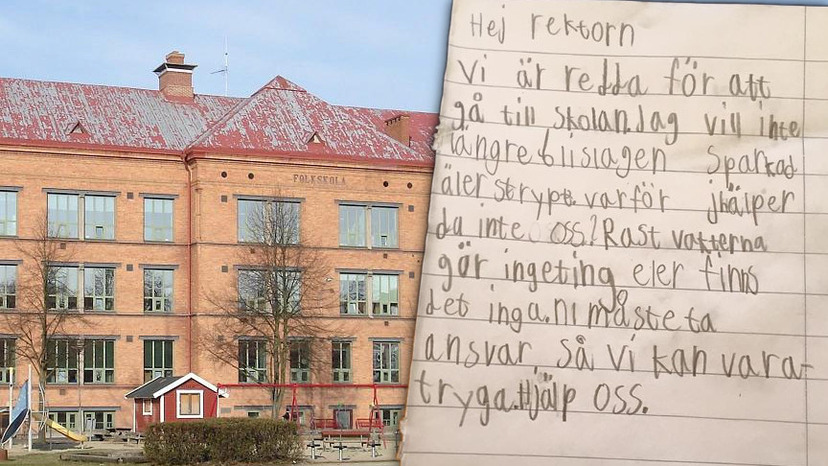 FOLKSKOLA
Hej rektorn
vi är redda för att
gå till skolan. Jag vill inte
längre bli slagen sparkad
äler strypt. varför jhälper
du inte oss? Rast vatterna
gör ingeting eler finns
det inga. ni måste ta
ansvar så vi kan vara
tryga. Hjälp oss.